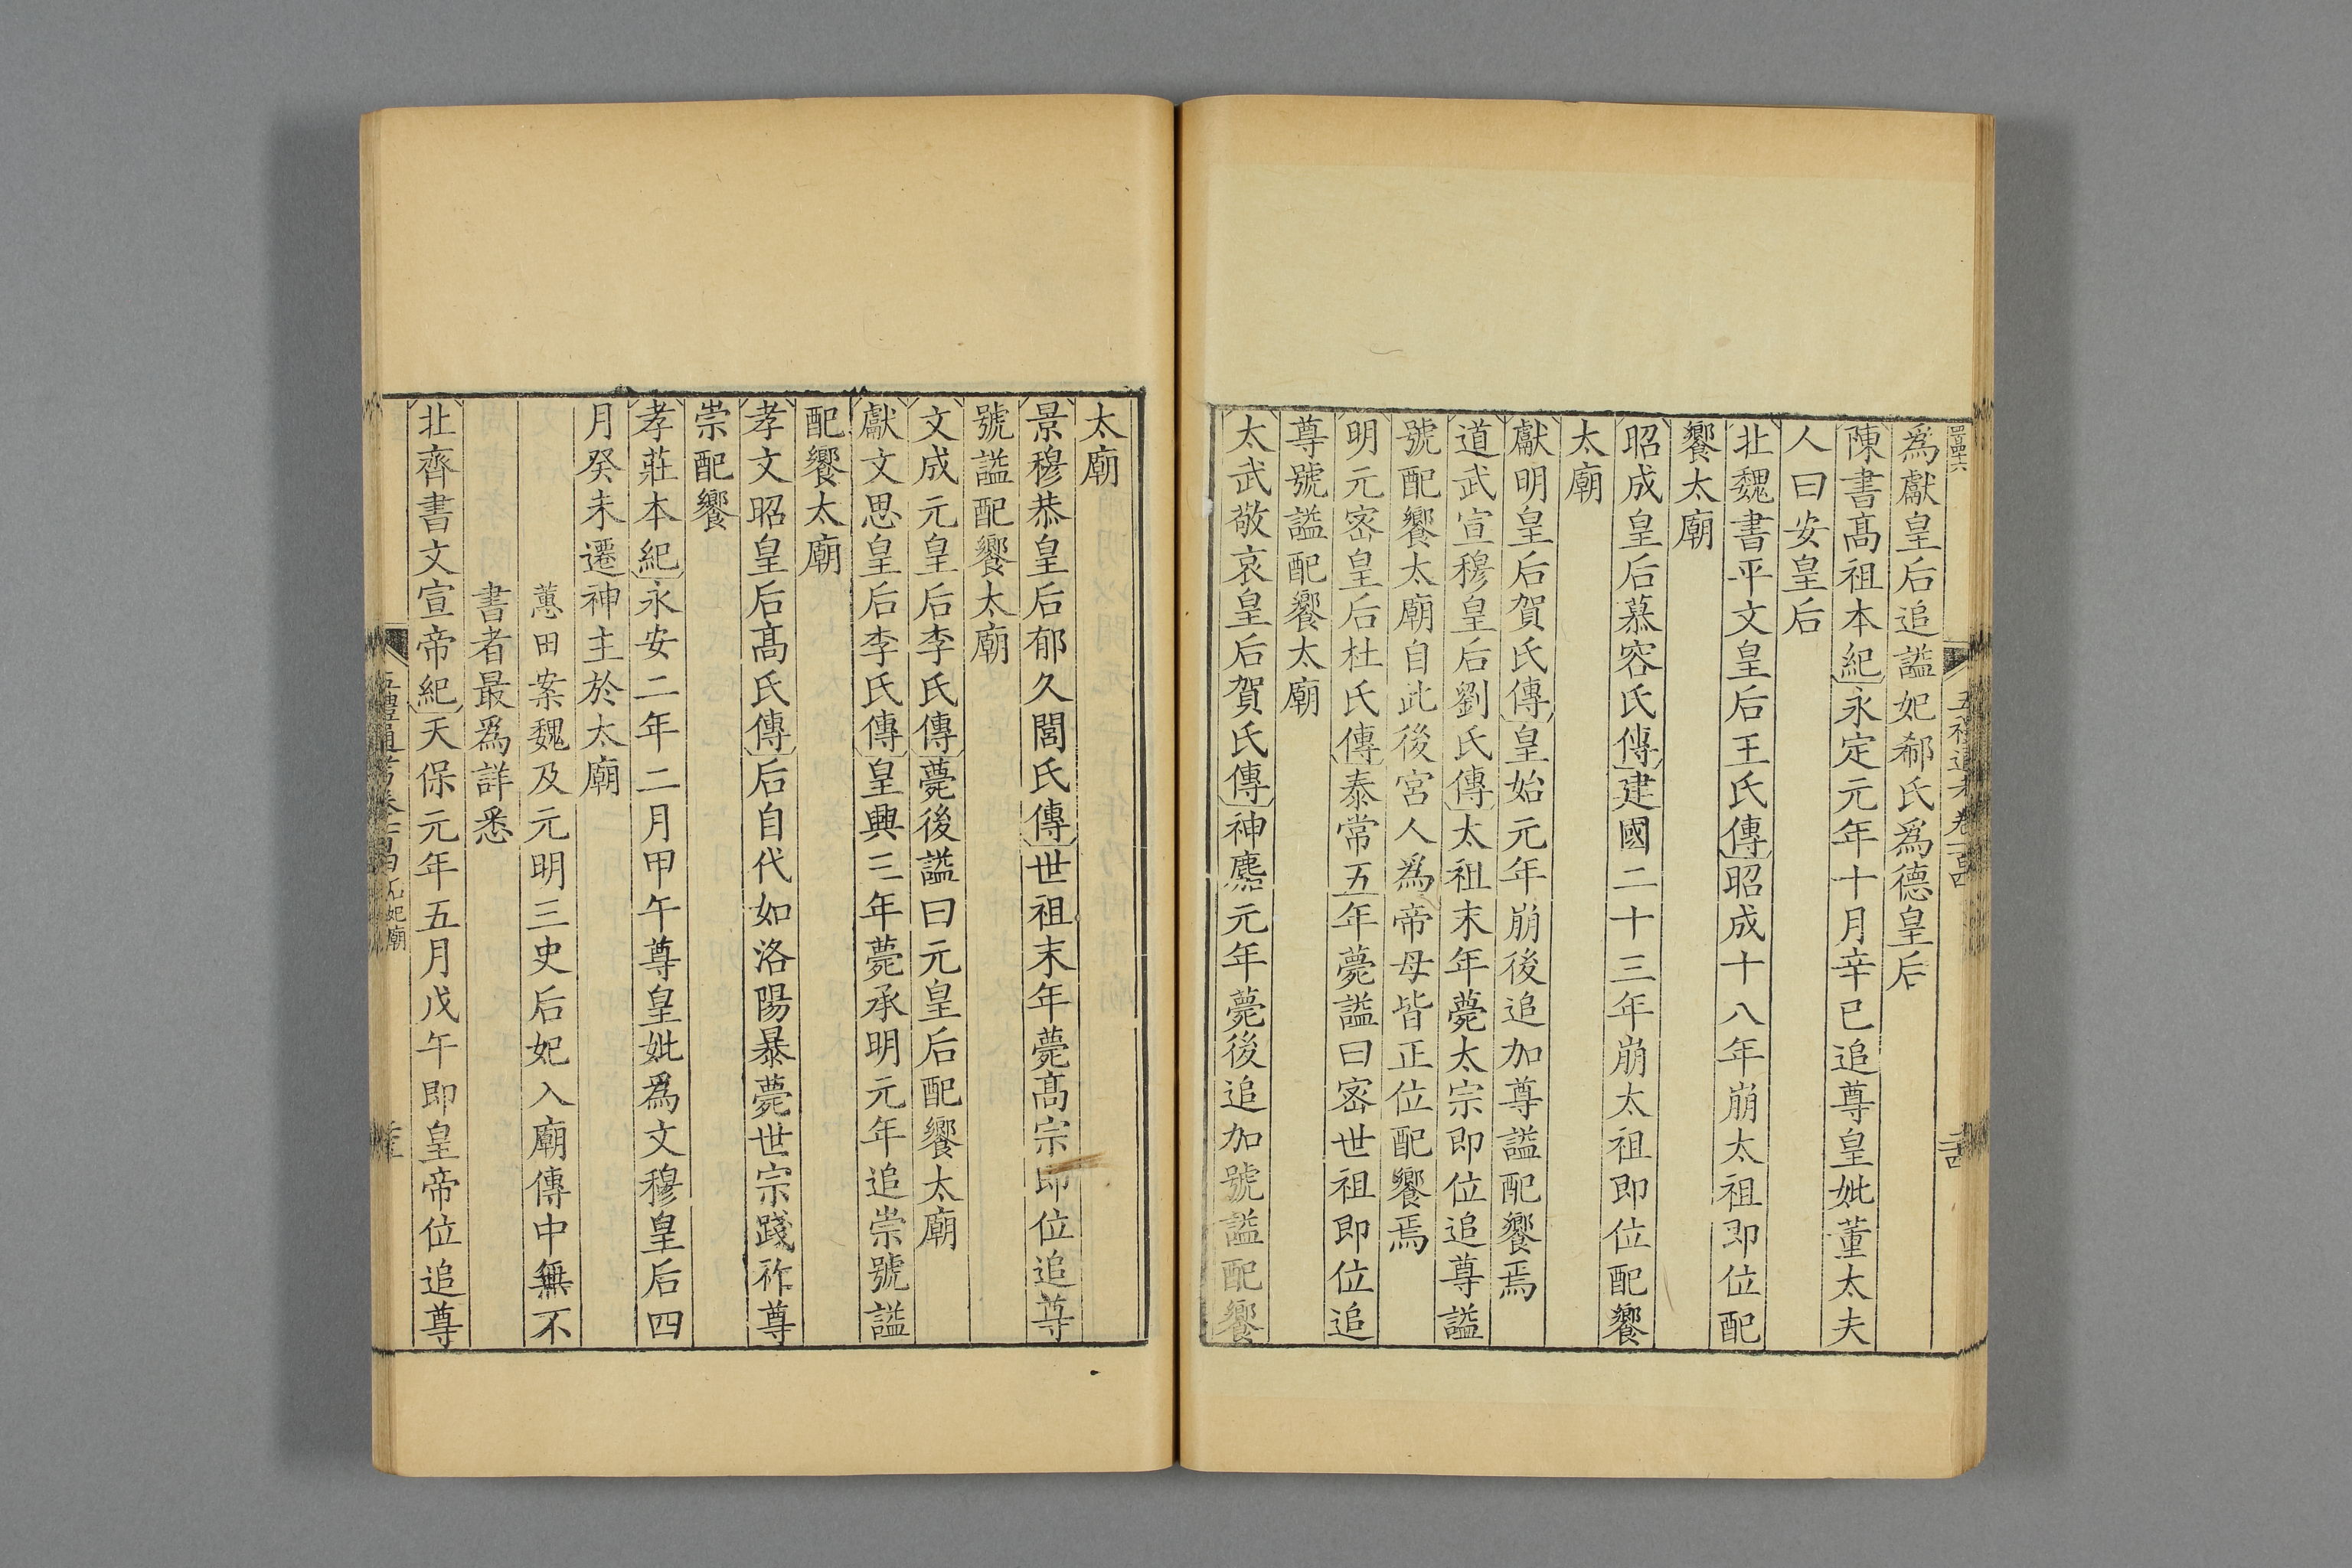 爲獻皇后追謚妃郗氏爲德皇后
陳書髙祖本紀永定元年十月辛巳追尊皇妣董太夫
人曰安皇后
北魏書平文皇后王氏傳昭成十八年崩太祖即位配
饗太廟
昭成皇后慕容氏傳建國二十三年崩太祖即位配饗
太廟
獻明皇后賀氏傳皇始元年崩後追加尊謚配饗焉
道武宣穆皇后劉氏傳太祖末年薨太宗即位追尊謚
號配饗太廟自此後宮人爲帝母皆正位配饗焉
明元密皇后杜氏傳泰常五年薨謚曰密世祖即位追
尊號謚配饗太廟
太武敬哀皇后賀氏傳神䴥元年薨後追加號謚配饗
太廟
景穆恭皇后郁久閭氏傳世祖末年薨髙宗即位追尊
號謚配饗太廟
文成元皇后李氏傳薨後謚曰元皇后配饗太廟
獻文思皇后李氏傳皇興三年薨承明元年追崇號謚
配饗太廟
孝文昭皇后髙氏傳后自代如洛陽暴薨世宗踐祚尊
崇配饗
孝莊本紀永安二年二月甲午尊皇妣爲文穆皇后四
月癸未遷神主於太廟
蕙田案魏及元明三史后妃入廟傳中無不
書者最爲詳悉
北齊書文宣帝紀天保元年五月戊午即皇帝位追尊
后妃廟